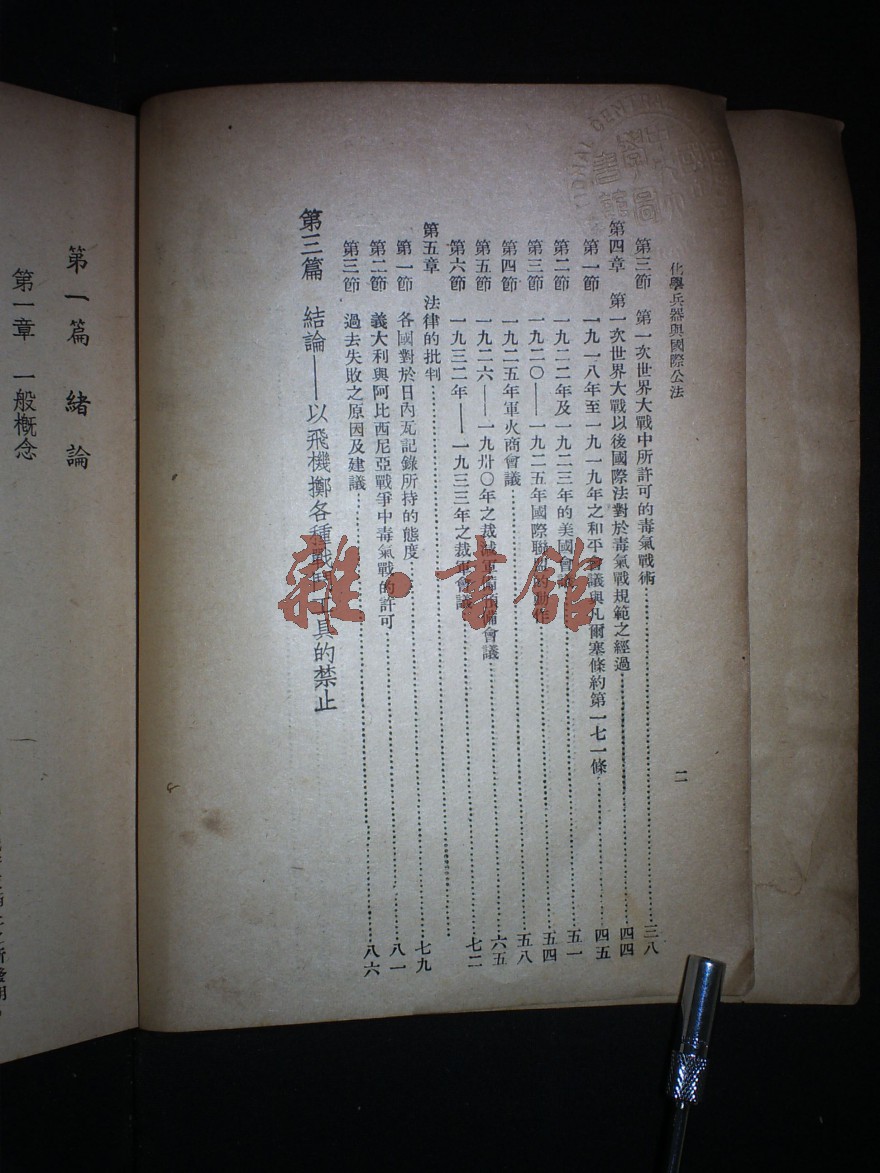 化學兵器與國際公法
二
第三節 第一次世界大戰中所許可的毒氣戰術……三八
第四章 第一次世界大戰以後國際法對於毒氣戰規範之經過……四四
第一節 一九一八年至一九一九年之和平會議與凡爾塞條約第一七一條……四五
第二節 一九二二年及一九二三年的美國會議……五一
第三節 一九二〇——一九二五年國際聯盟的動作……五四
第四節 一九二五年軍火商會議……五八
第五節 一九二六——一九卅〇年之裁減軍備預備會議……六五
第六節 一九三二年——一九三三年之裁軍會議……七二
第五章 法律的批判……
第一節 各國對於日內瓦記錄所持的態度……七九
第二節 義大利與阿比西尼亞戰爭中毒氣戰的許可……八一
第三節 過去失敗之原因及建議……八六
第三篇 結論——以飛機擲各種戰鬥工具的禁止
第一篇 緒論
第一章 一般概念
一
雜·書館
CENTRAL